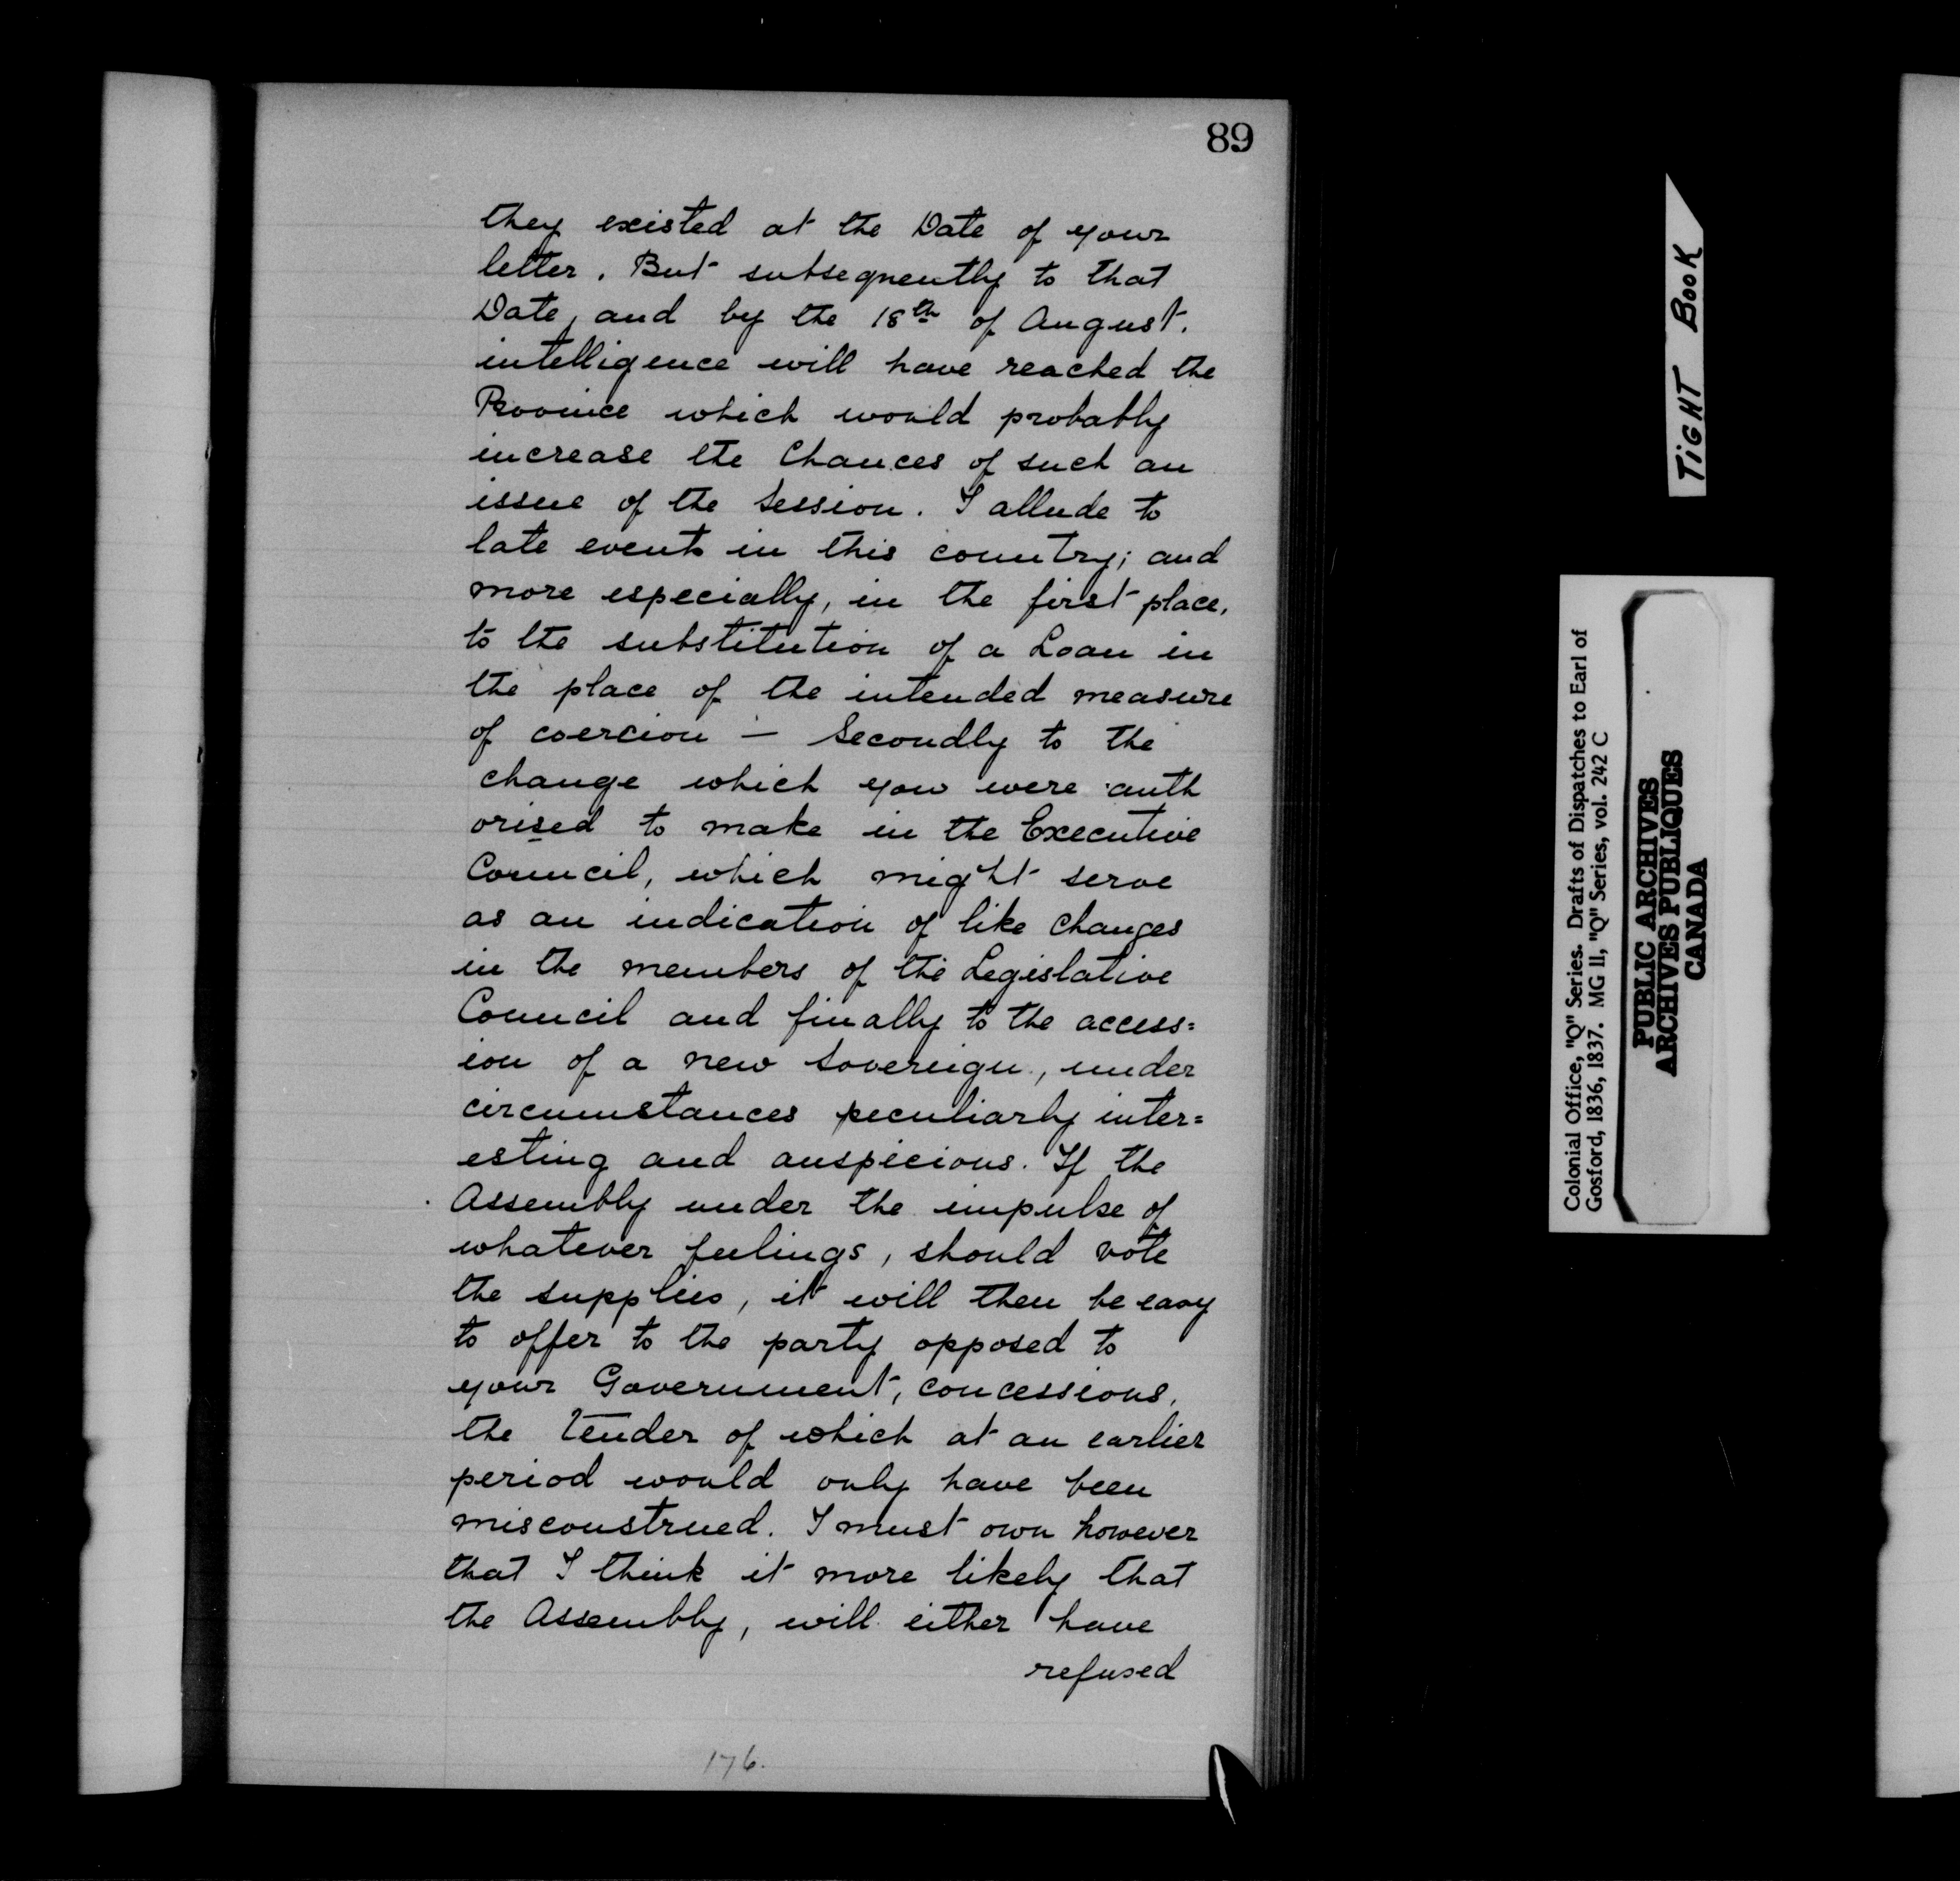 89
they existed at the Date of your
letter. But subsequently to that
Date, and by the 18th of August.
intelligence will have reached the
Province which would probably
increase the Chances of such an
issue of the Session. I allude to
late events in this country; and
more especially, in the first place,
to the substitution of a Loan in
the place of the intended measure
of coercion – Secondly to the
change which you were auth
orised to make in the Executive
Council, which might serve
as an indication of like changes
in the members of the Legislative
Council and finally to the access=
ion of a new Sovereign, under
circumstances peculiarly inter=
esting and auspicious. If the
Assembly under the impulse of
whatever feelings, should vote
the supplies, it will then be easy
to offer to the party opposed to
your Government, concessions,
the tender of which at an earlier
period would only have been
misconstrued. I must own however
that I think it more likely that
the Assembly, will either have
refused
176.
TIGHT BOOK
Colonial Office, "Q" Series. Drafts of Dispatches to Earl of
Gosford, 1836, 1837. MG 11, "Q" Series, vol. 242 C
PUBLIC ARCHIVES
ARCHIVES PUBLIQUES
CANADA